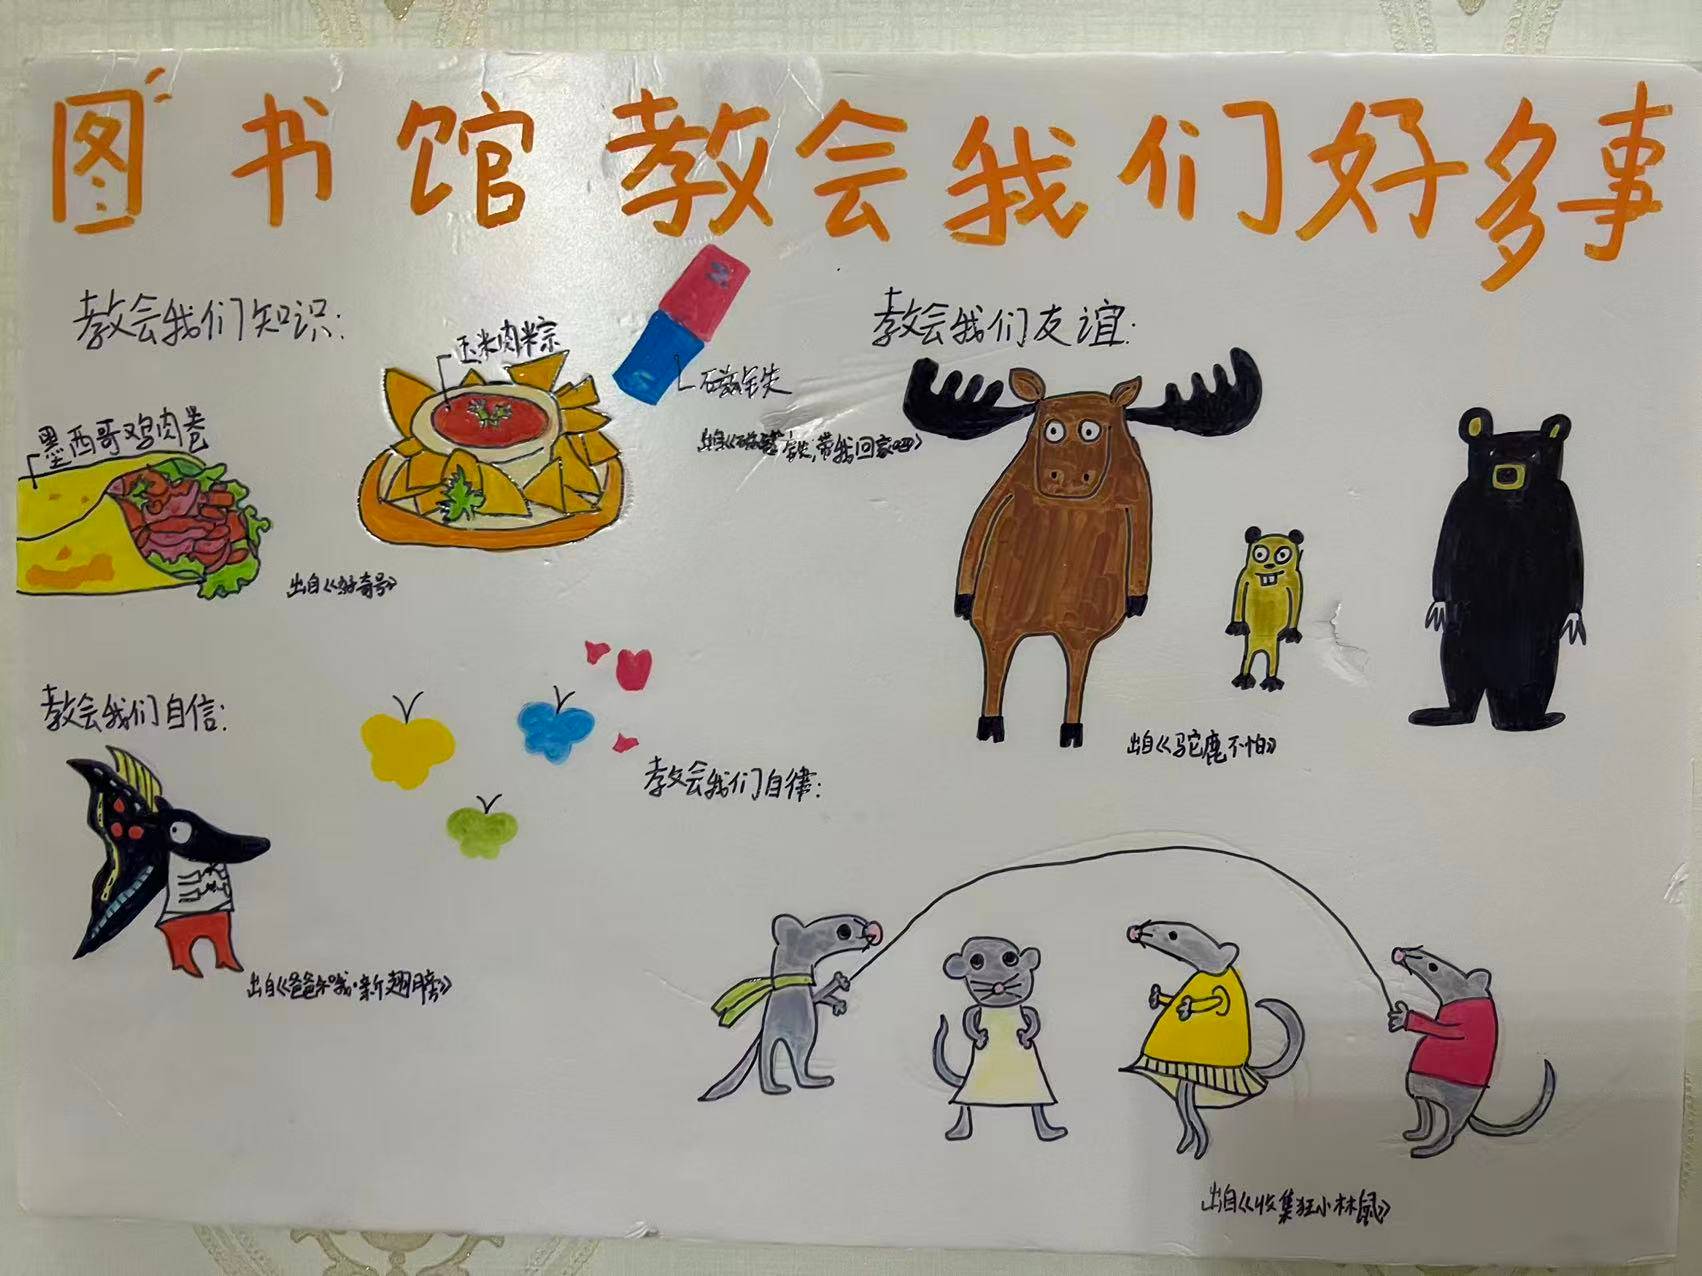 图书馆教会我们好多事
教会我们知识:
玉米肉粽
磁铁
墨西哥鸡肉卷
出自《好奇号》
出自《磁铁,带我回家吧》
教会我们友谊:
出自《驼鹿不怕》
教会我们自信:
出自《爸爸和我·新翅膀》
教会我们自律:
出自《收集狂小林鼠》